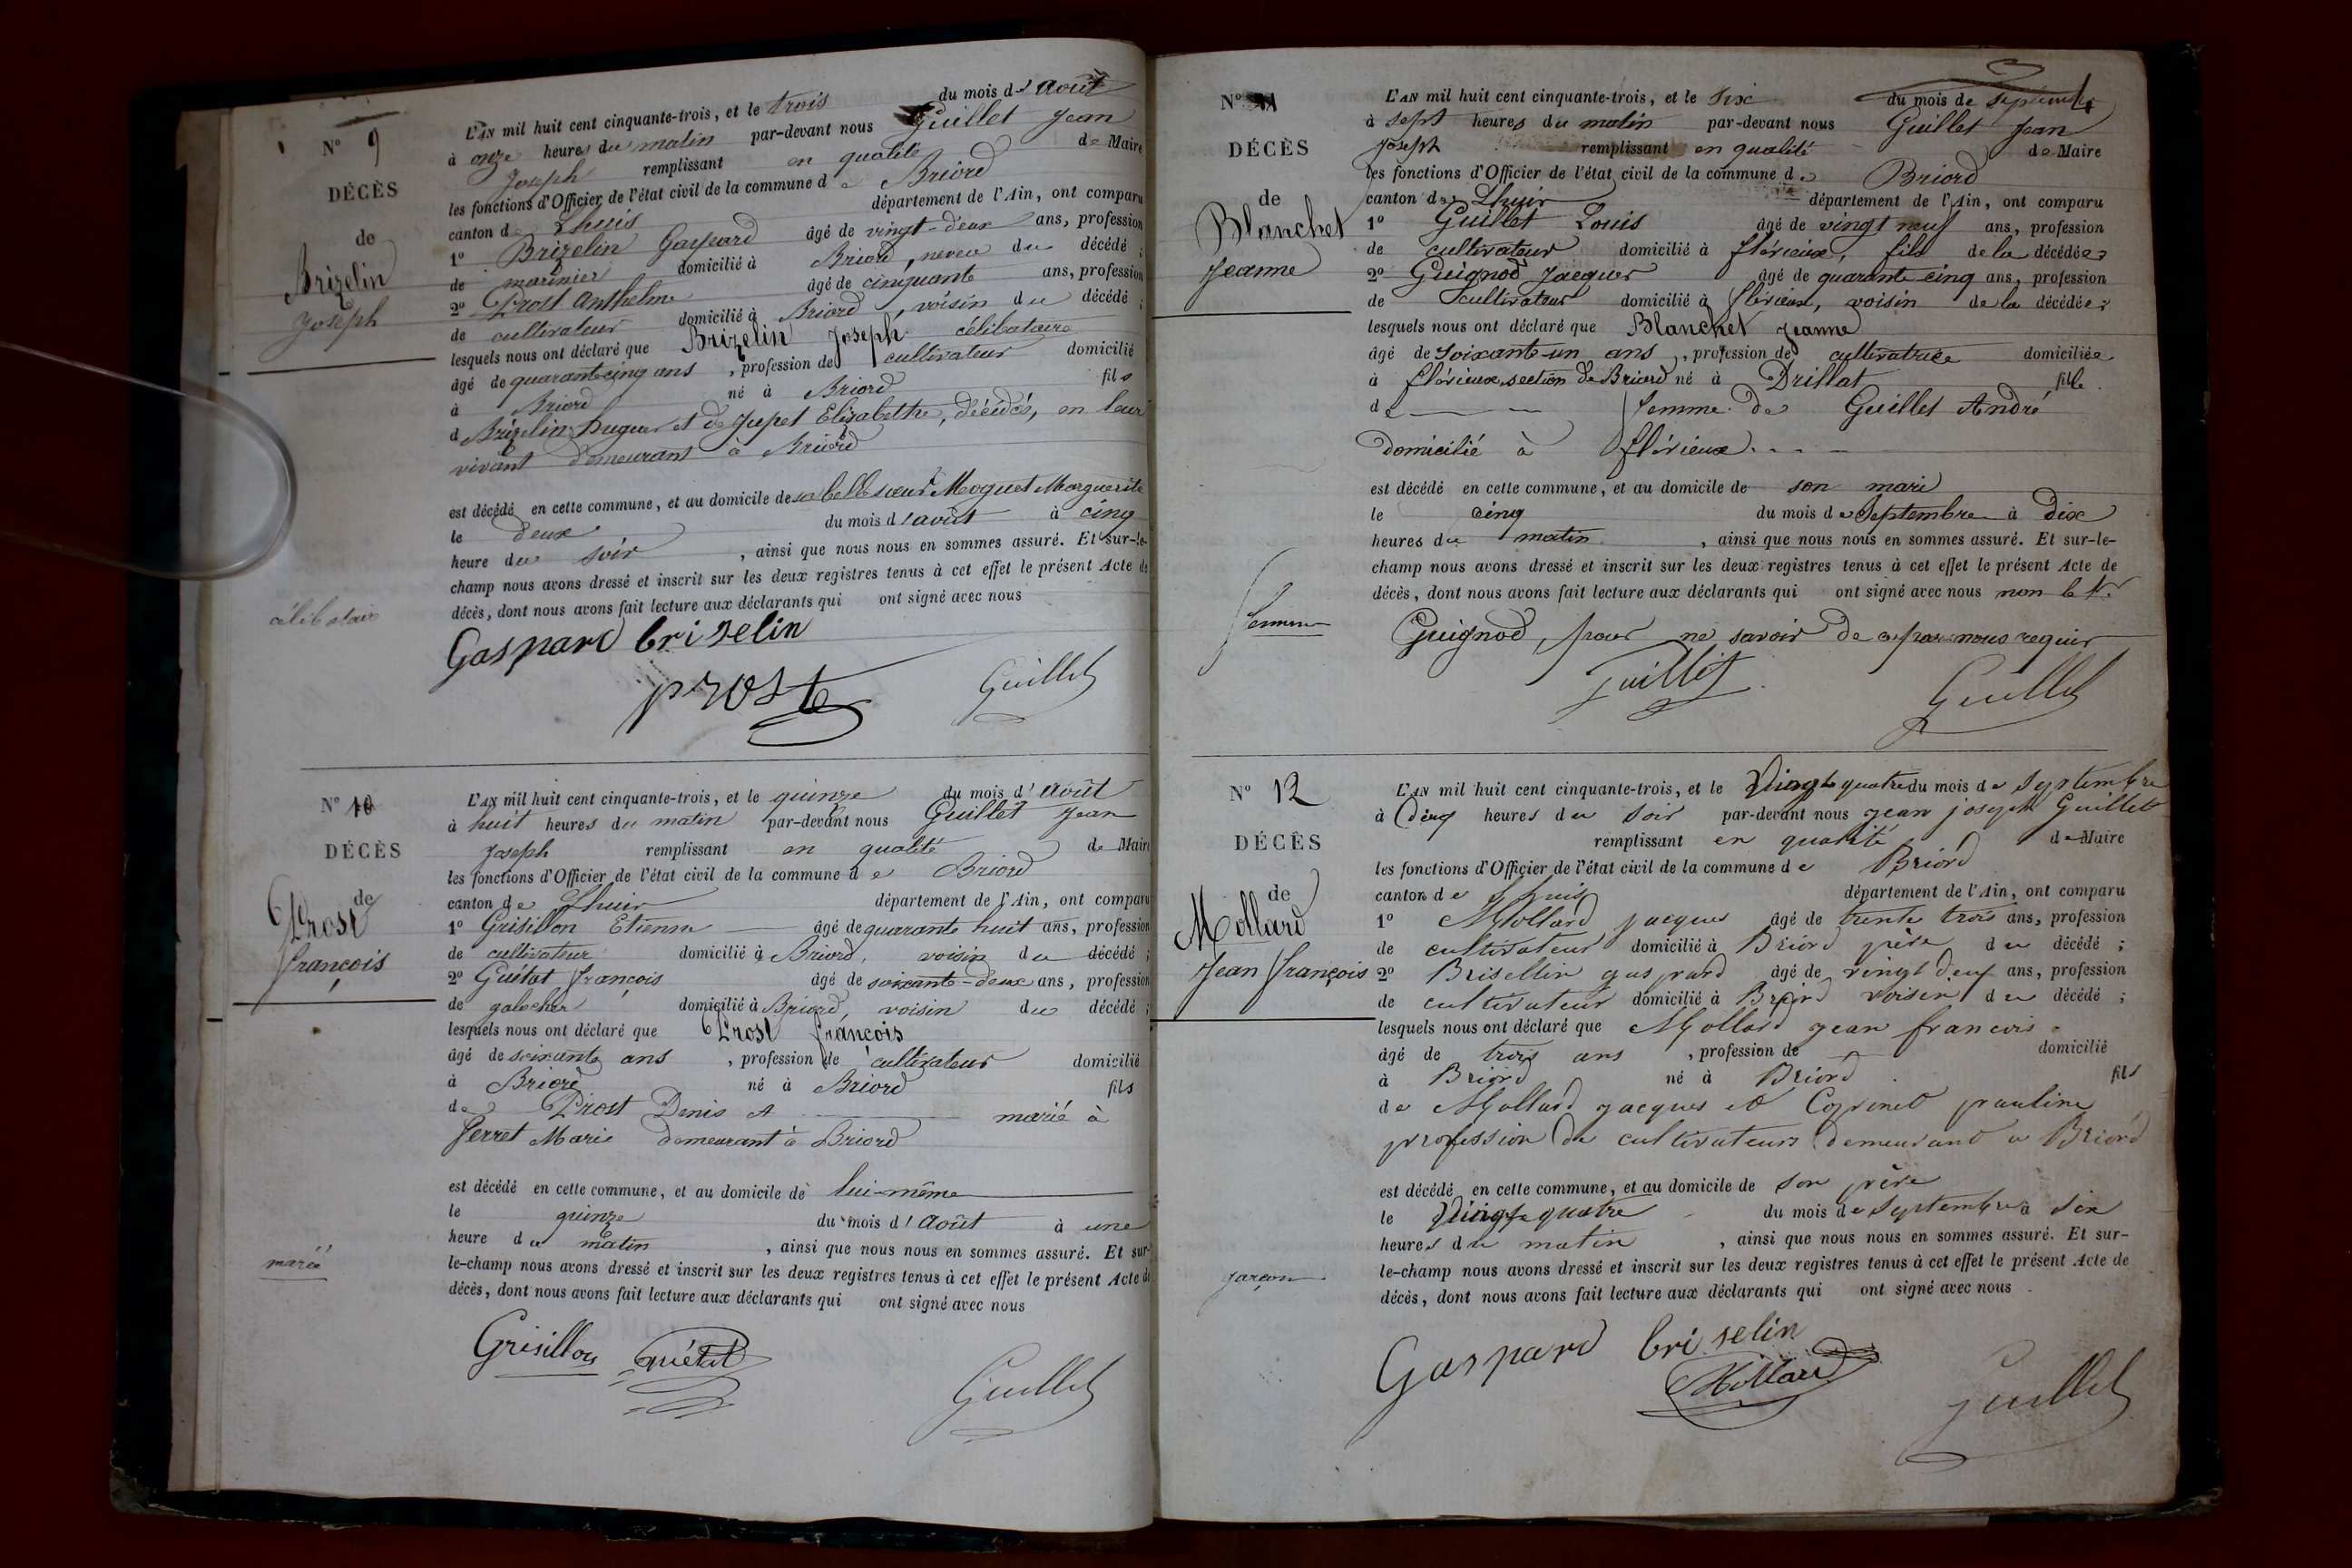 N° 9
DÉCÈS
de
Brizelin
Joseph
célibataire
L'AN mil huit cent cinquante-trois, et le trois du mois d'août
à onze heures du matin par-devant nous Guillet Jean
Joseph remplissant en qualité de Maire
les fonctions d'Officier de l'état civil de la commune de Briord
canton de Lhuis département de l'Ain, ont comparu
1° Brizelin Gaspard âgé de vingt-deux ans, profession
de marinier domicilié à Briord, neveu du décédé ;
2° Prost Anthelme âgé de cinquante ans, profession
de cultivateur domicilié à Briord, voisin du décédé ;
lesquels nous ont déclaré que Brizelin Joseph célibataire
âgé de quarante cinq ans, profession de cultivateur domicilié
à Briord né à Briord fils
d Brizelin et de Jupet Elisabethe, décédés, en leur
vivant demeurant à Briord
est décédé en cette commune, et au domicile de sa belle sœur Moquet Marguerite
le deux du mois d'août à cinq
heure du soir, ainsi que nous nous en sommes assuré. Et sur-le-
champ nous avons dressé et inscrit sur les deux registres tenus à cet effet le présent Acte de
décès, dont nous avons fait lecture aux déclarants qui ont signé avec nous
Gaspard briselin
prost Guillet
N° 10
DÉCÈS
de
Prost
françois
marié
L'AN mil huit cent cinquante-trois, et le quinze du mois d'Août
à huit heures du matin par-devant nous Guillet Jean
Joseph remplissant en qualité de Maire
les fonctions d'Officier de l'état civil de la commune de Briord
canton de Lhuis département de l'Ain, ont comparu
1° Grisillon Etienne âgé de quarante huit ans, profession
de cultivateur domicilié à Briord, voisin du décédé ;
2° Guétat françois âgé de soixante-deux ans, profession
de galocher domicilié à Briord, voisin du décédé ;
lesquels nous ont déclaré que Prost françois
âgé de soixante ans, profession de cultivateur domicilié
à Briord né à Briord fils
de Prost Denis et marié à
ferret Marie demeurant à Briord
est décédé en cette commune, et au domicile de lui-même
le quinze du mois d'Août à une
heure du matin, ainsi que nous nous en sommes assuré. Et sur-
le-champ nous avons dressé et inscrit sur les deux registres tenus à cet effet le présent Acte de
décès, dont nous avons fait lecture aux déclarants qui ont signé avec nous
Grisillon Guétat
Guillet
N° 11
DÉCÈS
de
Blanchet
Jeanne
femme
L'AN mil huit cent cinquante-trois, et le six du mois de septembre
à sept heures du matin par-devant nous Guillet Jean
Joseph remplissant en qualité de Maire
les fonctions d'Officier de l'état civil de la commune de Briord
canton de Lhuis département de l'Ain, ont comparu
1° Guillet Louis âgé de vingt neuf ans, profession
de cultivateur domicilié à flérieux, fils de la décédée ;
2° Guignod Jacques âgé de quarante cinq ans, profession
de cultivateur domicilié à flérieux, voisin de la décédée ;
lesquels nous ont déclaré que Blanchet Jeanne
âgé de soixante-un ans, profession de cultivatrice domiciliée
à flérieux section de Briord né à Drillat fille
de femme de Guillet André
Domicilié à flérieux.
est décédé en cette commune, et au domicile de son mari
le cinq du mois de Septembre à Dix
heures du matin, ainsi que nous nous en sommes assuré. Et sur-le-
champ nous avons dressé et inscrit sur les deux registres tenus à cet effet le présent Acte de
décès, dont nous avons fait lecture aux déclarants qui ont signé avec nous non le
Guignod, pour ne savoir de ce par nous requis
Guillet Guillet
N° 12
DÉCÈS
de
Mollard
Jean françois
garçon
L'AN mil huit cent cinquante-trois, et le Vingt quatre du mois de Septembre
à Cinq heures du soir par-devant nous jean joseph Guillet
remplissant en qualité de Maire
les fonctions d'Officier de l'état civil de la commune de Briord
canton de Lhuis département de l'Ain, ont comparu
1° Mollard jacques âgé de trente trois ans, profession
de cultivateur domicilié à Briord père du décédé ;
2° Brisellin gaspard âgé de vingt deux ans, profession
de cultivateur domicilié à Briord voisin du décédé ;
lesquels nous ont déclaré que Mollard jean francois
âgé de trois ans, profession de domicilié
à Briord né à Briord fils
de Mollard jacques et pauline
profession de cultivateurs demeurant a Briord
est décédé en cette commune, et au domicile de son père
le Vingt quatre du mois de Septembre à Six
heures du matin, ainsi que nous nous en sommes assuré. Et sur-
le-champ nous avons dressé et inscrit sur les deux registres tenus à cet effet le présent Acte de
décès, dont nous avons fait lecture aux déclarants qui ont signé avec nous.
Gaspard briselin
Mollard Guillet